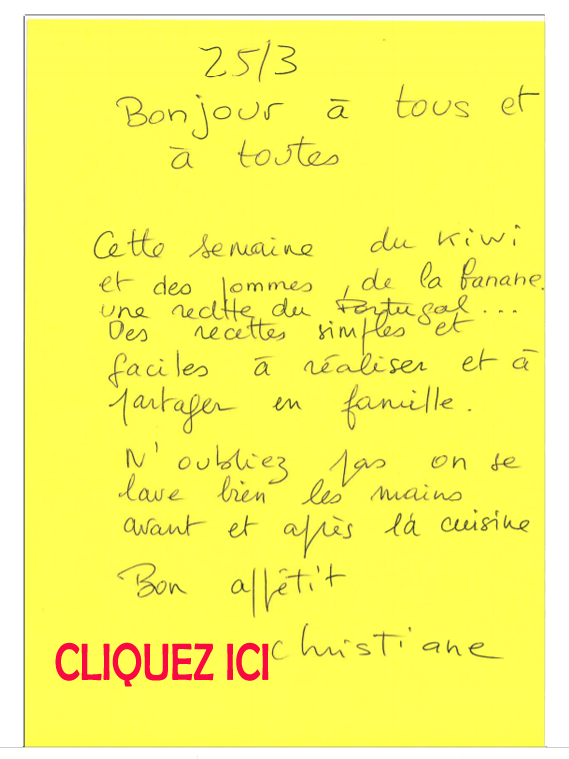 25/3
Bonjour à tous et
à toutes
Cette semaine du kiwi
et des pommes, de la banane.
une recette du Portugal...
Des recettes simples et
faciles à réaliser et à
partager en famille.
N'oubliez pas on se
lave bien les mains
avant et après la cuisine
Bon appétit
Christiane
CLIQUEZ ICI